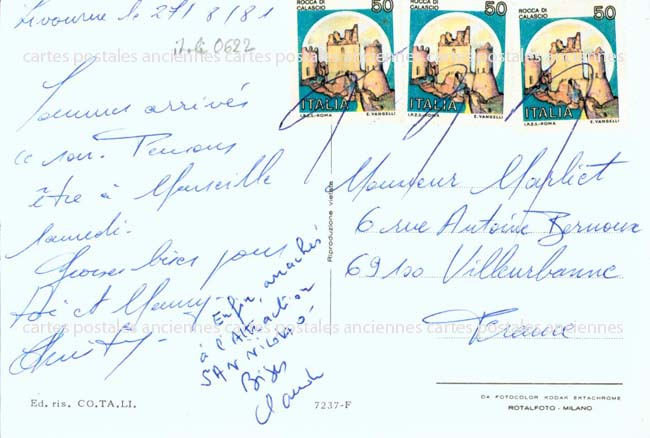 Livourne le 27/8/81
itali 0622
ROCCA DI CALASCIO 50
ITALIA
I.P.Z.S.-ROMA E. VANGELLI
ROCCA DI CALASCIO 50
ITALIA
I.P.Z.S.-ROMA E. VANGELLI
ROCCA DI CALASCIO 50
ITALIA
I.P.Z.S.-ROMA E. VANGELLI
cartes postales anciennes cartes postales anciennes cartes postales anciennes
Sommes arrivés
ce soir. Pensons
être à Marseille
samedi.
Grosses bises pour
toi et Mamy
Enfin, arrachés
à l'Attraction
SAN NICOLAO,
Bises
Claude
Riproduzione vietata
Monsieur Marliet
6 rue Antoine Bernoux
69100 Villeurbanne
France
cartes postales anciennes cartes postales anciennes cartes postales anciennes
Ed. ris. CO.TA.LI.
7237-F
DA FOTOCOLOR KODAK EKTACHROME
ROTALFOTO - MILANO